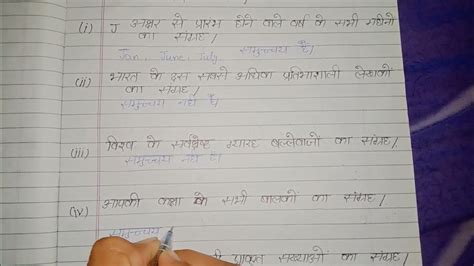 (i) J अक्षर से प्रारंभ होने वाले वर्ष के सभी महीनों
का संग्रह।
Jan, June, July. समुच्चय है।
(ii) भारत के दस सबसे अधिक प्रतिभाशाली लेखकों
का संग्रह।
समुच्चय नहीं है।
(iii) विश्व के सर्वश्रेष्ठ ग्यारह बल्लेबाजों का संग्रह।
समुच्चय नहीं है।
(iv) आपकी कक्षा के सभी बालकों का संग्रह।
समुच्चय
प्राकृत संख्याओं का संग्रह।